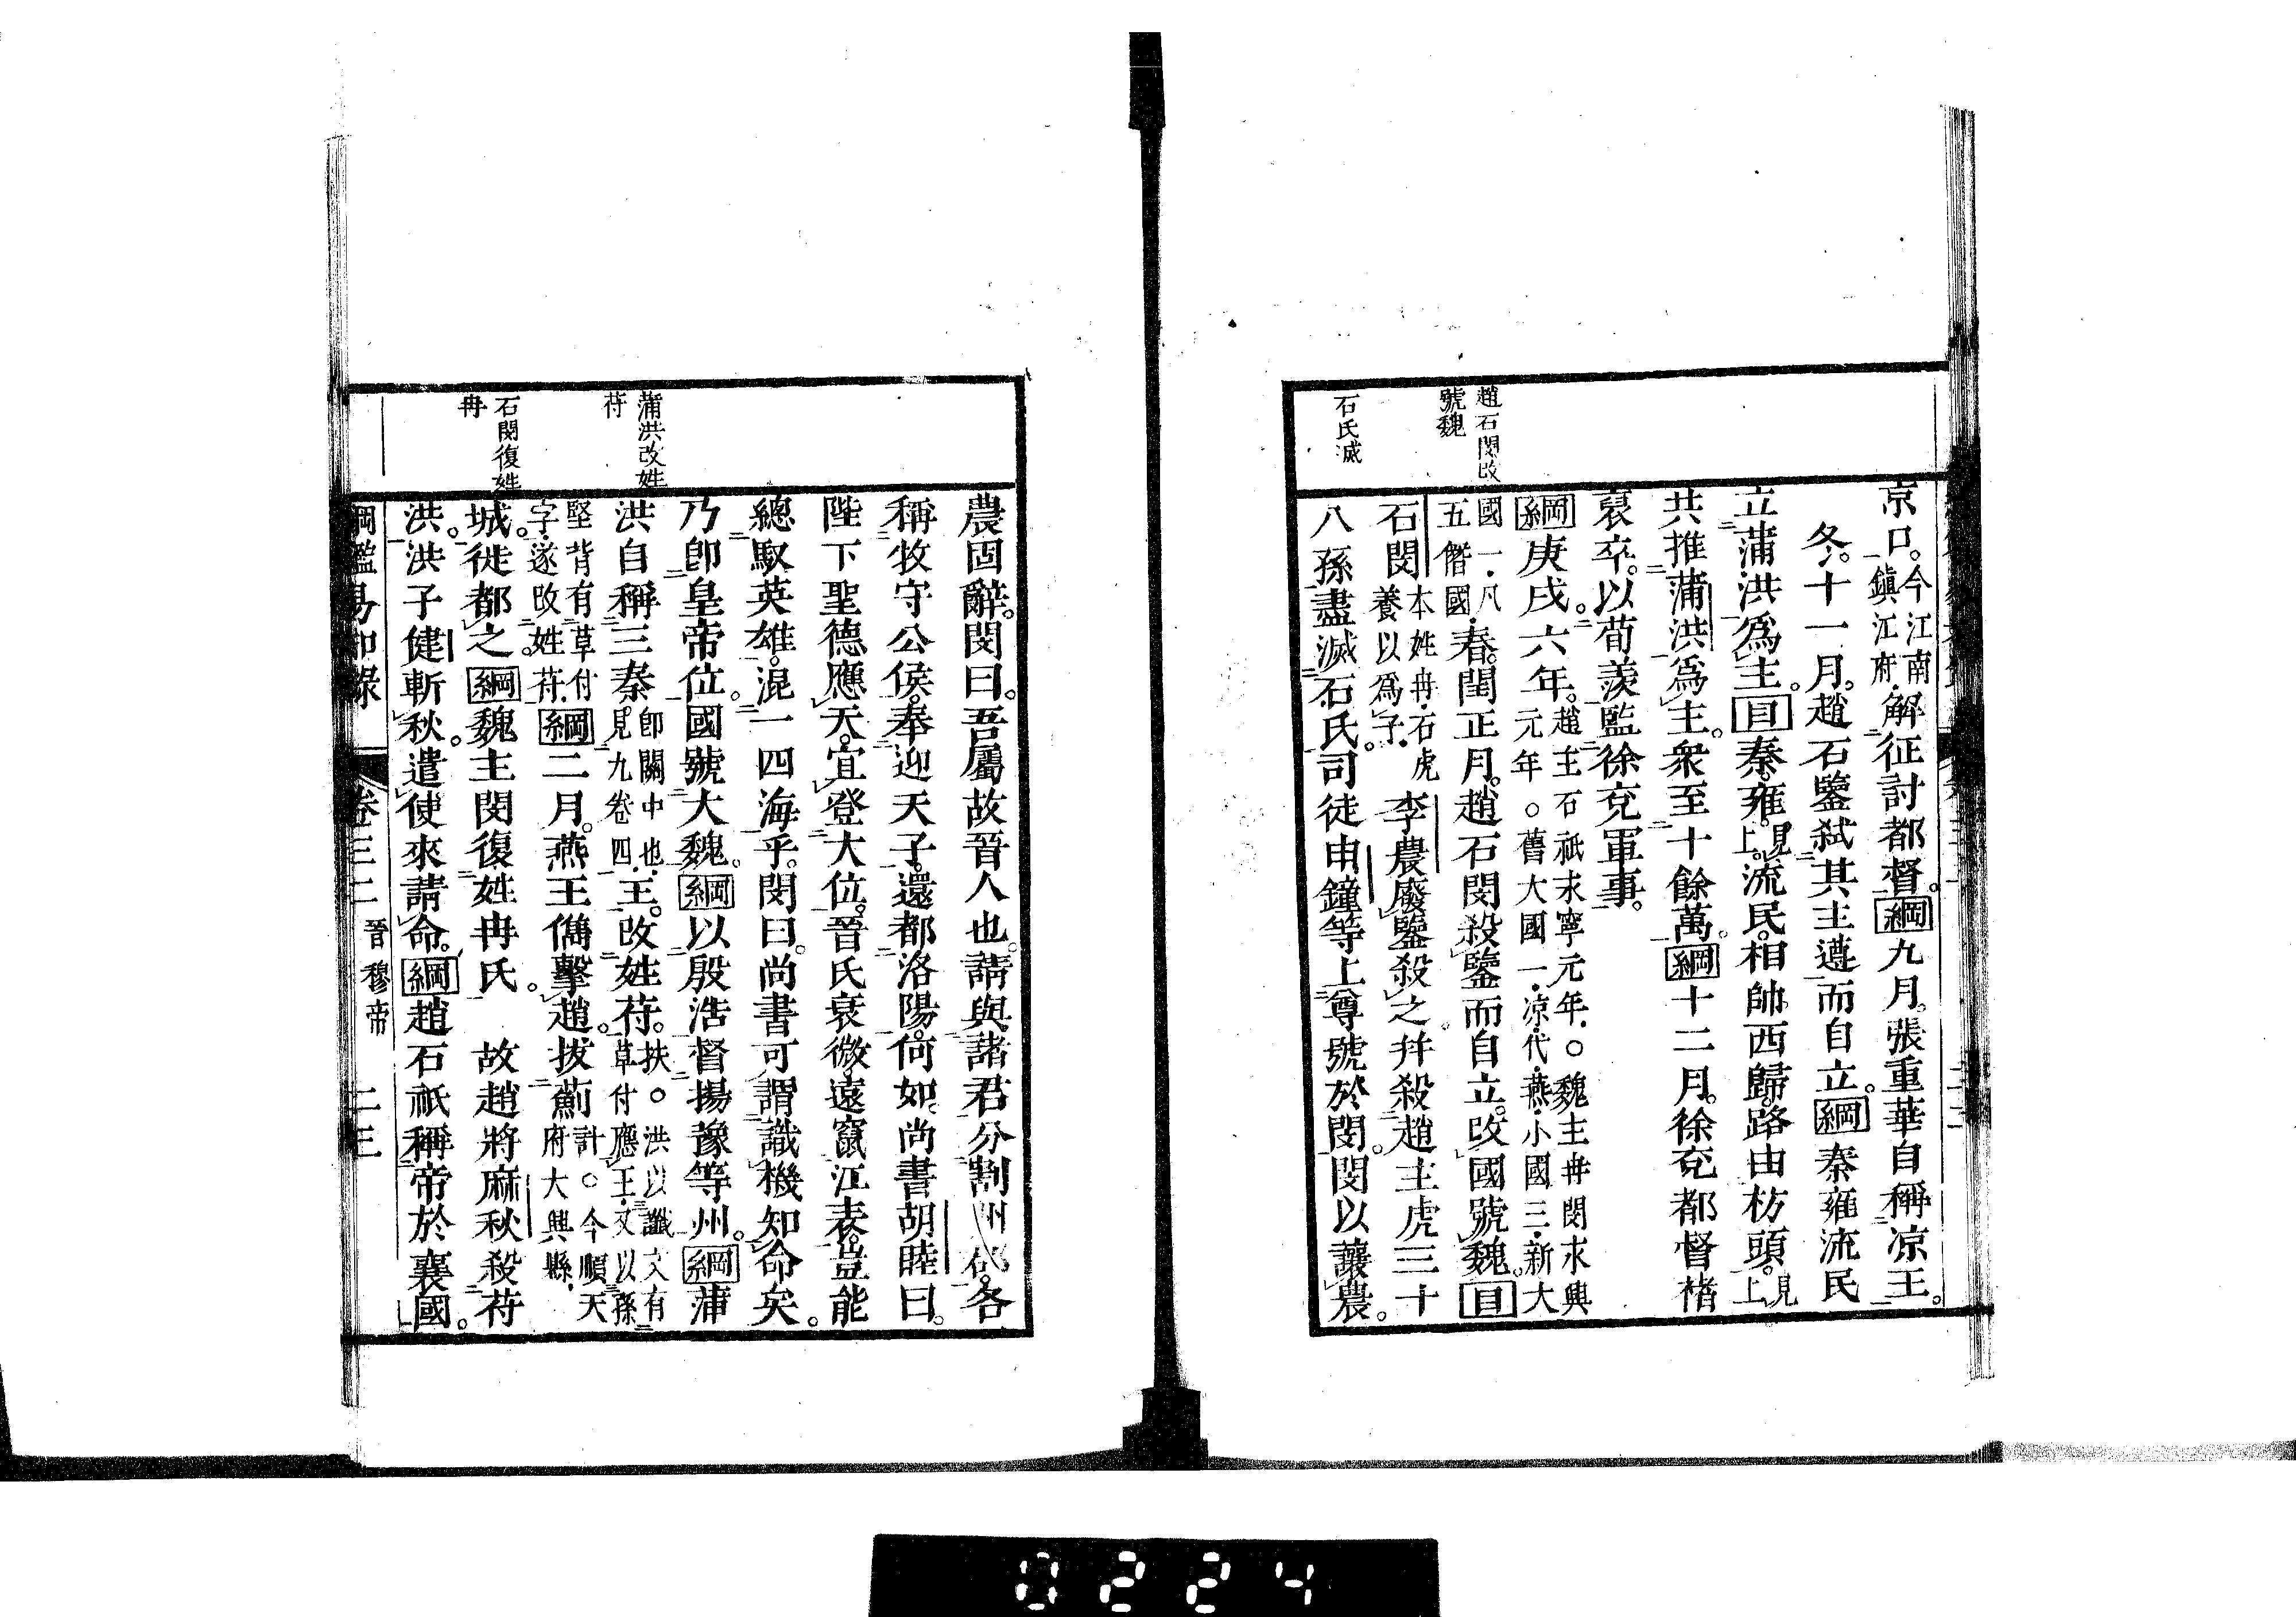 趙石閔改
號魏
石氏滅
京口。今江南鎮江府。解征討都督。綱九月。張重華自稱凉王。
冬。十一月。趙石鑒弑其主遵而自立。綱秦雍流民
立蒲洪爲主。目秦。雍。見上。流民。相帥西歸。路由枋頭。見上。
共推蒲洪爲主。衆至十餘萬。綱十二月。徐兗都督褚
裒卒。以荀羨監徐兗軍事。
綱庚戌六年。趙主石祇永寧元年。○魏主冉閔永興元年。○舊大國一。凉。代。燕。小國三。新大
國一。凡五僭國。春。閏正月。趙石閔殺鑒而自立。改國號魏。目
石閔本姓冉。石虎養以爲子。李農廢鑒殺之。并殺趙主虎三十
八孫。盡滅石氏。司徒申鐘等上尊號於閔。閔以讓農。
蒲洪改姓
苻
石閔復姓
冉
農固辭。閔曰。吾屬故晉人也。請與諸君分割州郡。各
稱牧守公侯。奉迎天子。還都洛陽。何如。尚書胡睦曰。
陛下聖德應天。宜登大位。晉氏衰微。遠竄江表。豈能
總馭英雄。混一四海乎。閔曰。尚書可謂識機知命矣。
乃卽皇帝位。國號大魏。綱以殷浩督揚豫等州。綱蒲
洪自稱三秦。卽關中也。見九卷四。王。改姓苻。扶。○洪以讖文有草付應王。又以孫
堅背有草付字。遂改姓苻。綱二月。燕王儁擊趙。拔薊計。○今順天府大興縣。
城。徙都之。綱魏主閔復姓冉氏。 故趙將麻秋殺苻
洪。洪子健斬秋。遣使來請命。綱趙石祇稱帝於襄國。
綱鑑易知錄 卷三二 晉穆帝 二三
0224